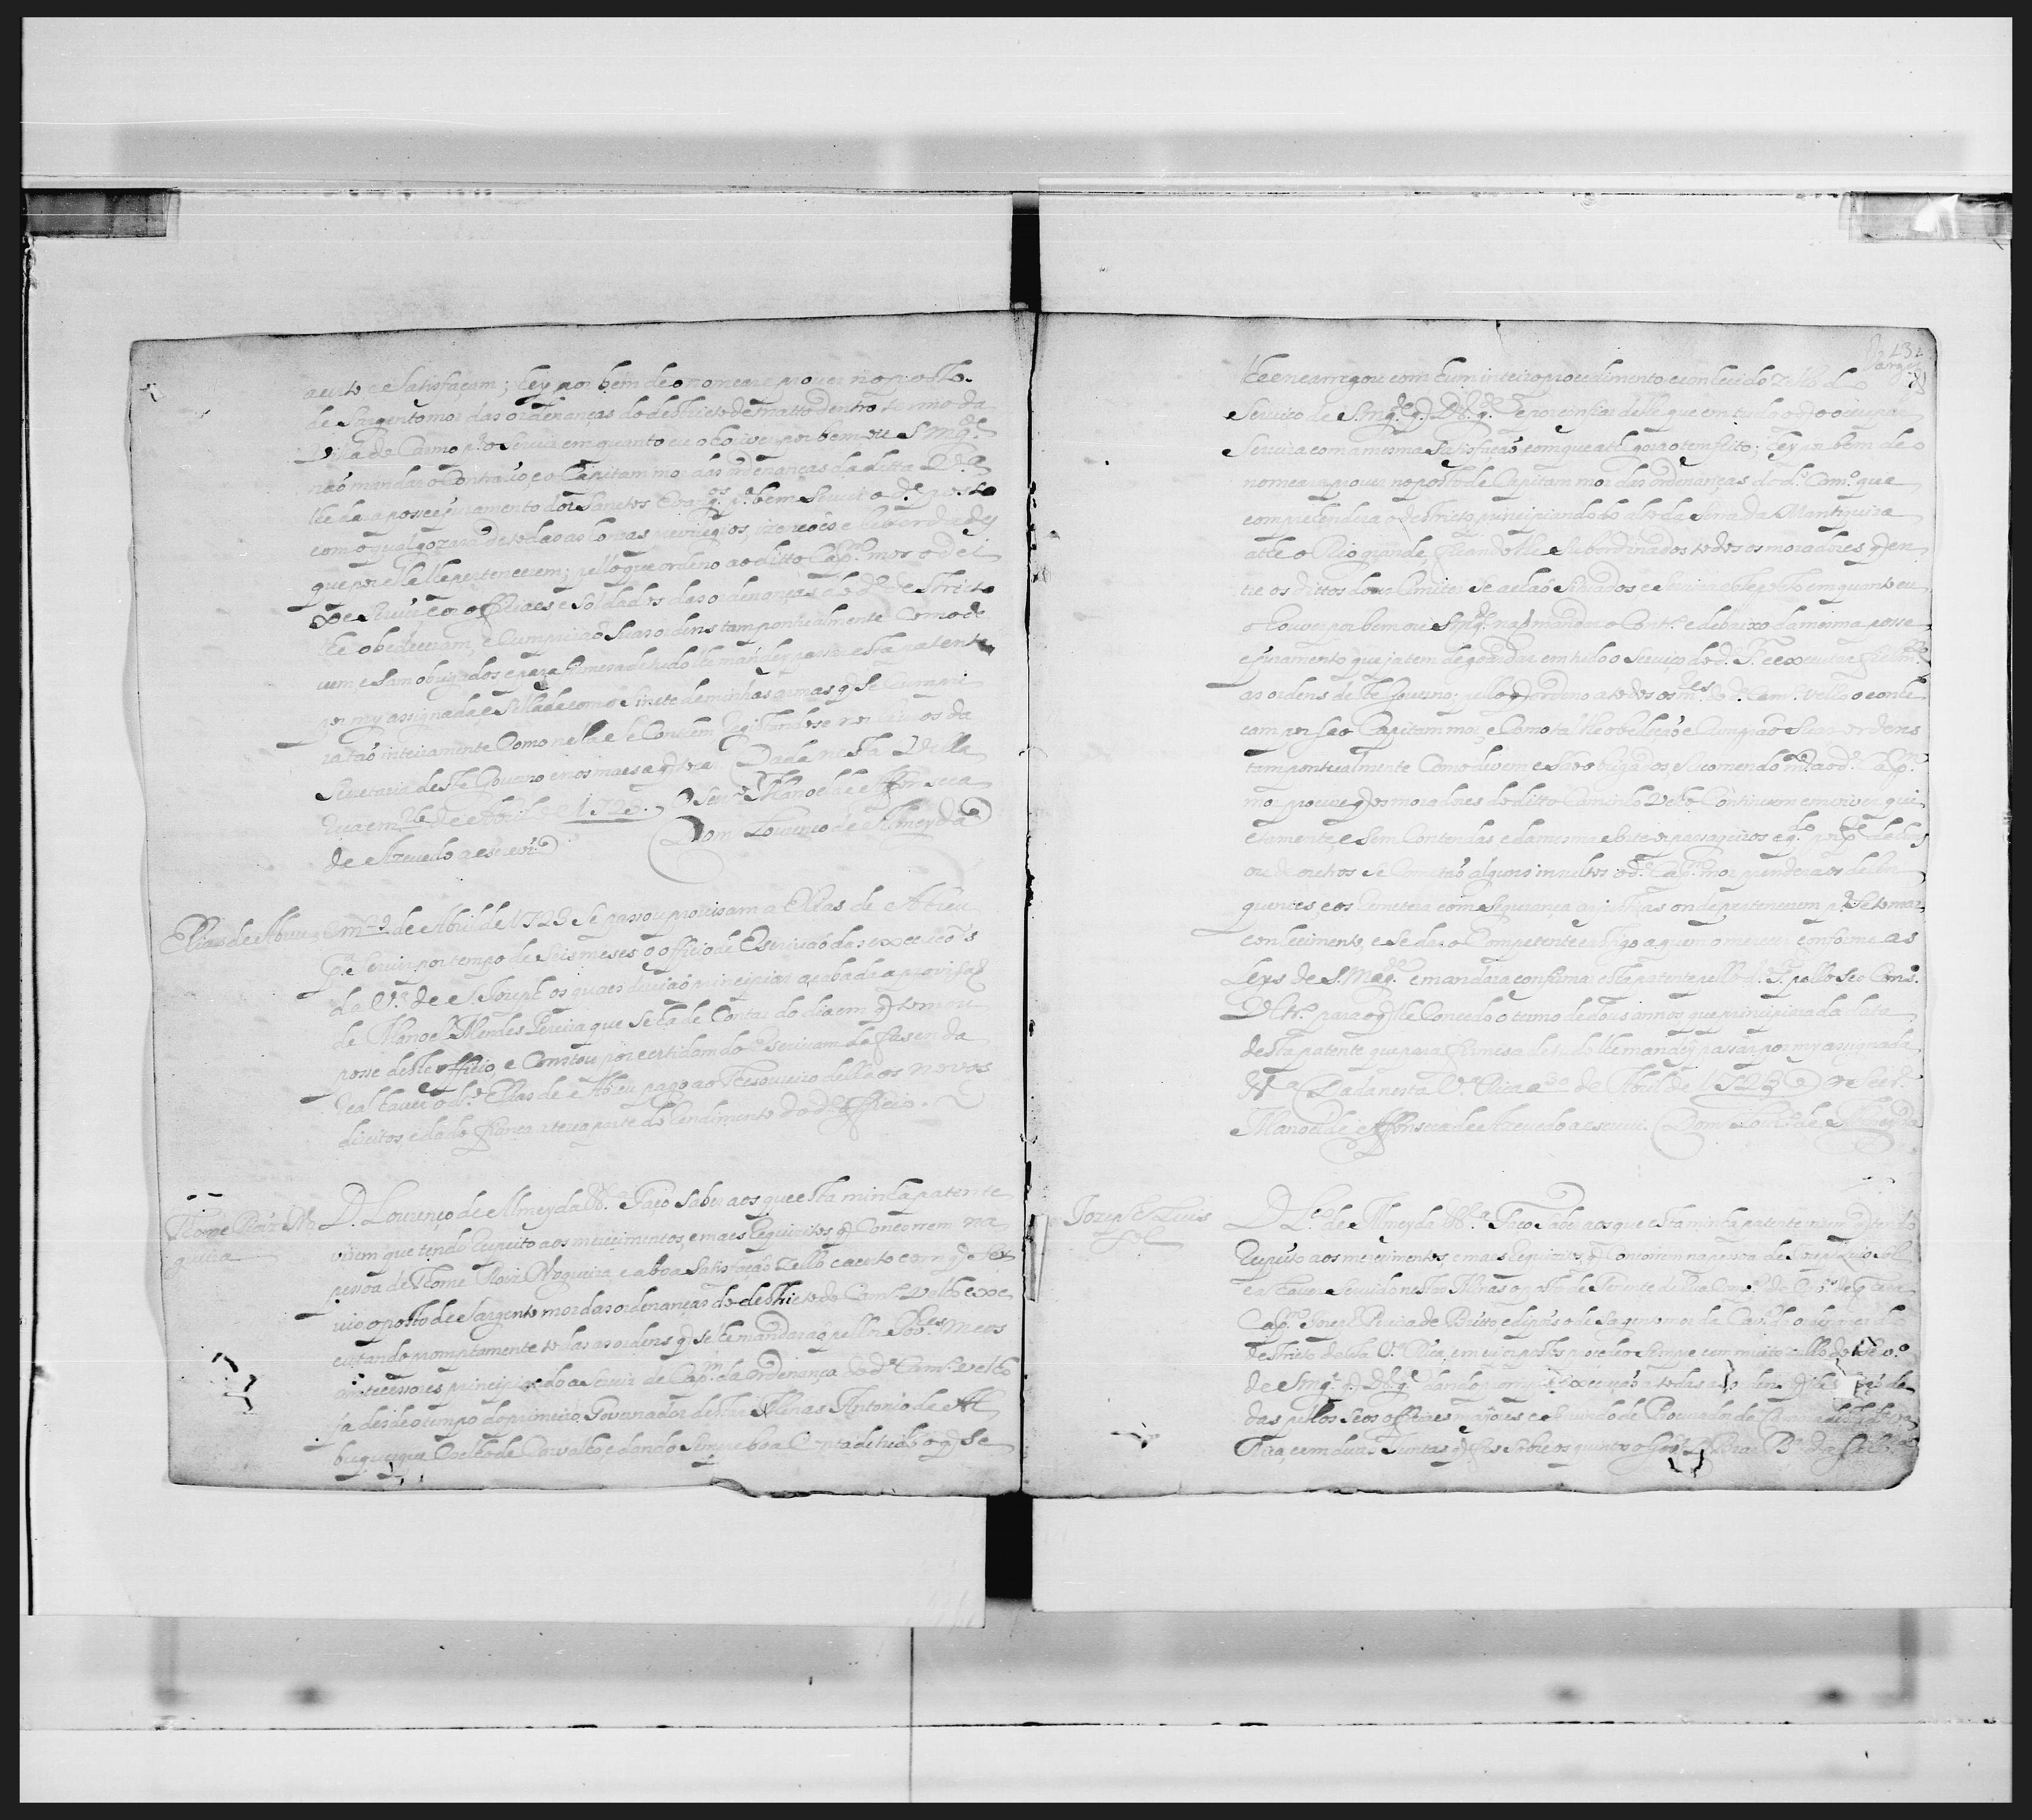 acerto e Satisfaçam; hey por bem de o nomear e prover no posto
de Sargento mor das ordenanças do destricto de matto dentro termo da
Villa do Carmo p.ª o Servir em quanto eu o houver por bem ou S Mg.de
não mandar o Contrario, e o Capitam mor das ordenanças da ditta V.ª
lhe dará posse e juramento dos Sanctos Evang.os p.ª bem Servir o d.º posto
com o qual gozará de todas as honras previlegios, izençoés e liberdades
que por elle lhe pertencerem; pello que ordeno ao ditto Cap.m mor o dei
xe Servir, e os officiaes e Soldados das ordenanças do d.º destricto
lhe obedeceram, e Cumpriraõ Suas ordens tam pontualmente Como de
vem e Sam obrigados e para firmeza de tudo lhe mandey passar esta patente
por my assignada e Sellada com o Sinete de minhas armas q̃ Se Cumpri
ra taõ inteiramente Como nella Se Contem Registandose nos Livros da
Secretaria deste Governo e nos mais a q̃ tocar Dada nesta Villa
Rica em 26 de Abril de 1723. O Secr.º Manoel de Affonseca
de Azevedo a escrevi. Dom Lourenço de Almeyda
Elias de Abreu
Em 29 de Abril de 1723 Se passou provisam a Elias de Abreu
p.ª Servir por tempo de Seis meses o officio de Escrivaõ das execuçoĩs
da V.ª de S. Joseph os quaes deviaõ principiar acabada a provisaõ
de Manoel Mendes Pereira que Se ha de Contar do dia em q̃ tomou
posse deste officio, e Constou por certidam do Escrivam da fasenda
Real haver o d.º Elias de Abreu pago ao Thesoureiro della os novos
direitos e dado fiança a terça parte do Rendimento do d.º officio.
Thome Roiz No
gueira
D. Lourenço de Almeyda &.ª Faço Saber aos que esta minha patente
virem que tendo Respeito aos merecimentos, e mais Requizitos q̃ Concorrem na
pessoa de Thome Roiz Nogueira, e a boa Satisfaçaõ zello e acerto com q̃ Ser
vio o posto de Sargento mor das ordenanças do destricto do Cam.º velho exe
cutando promptamente todas as ordens q̃ Se lhe mandaraõ pellos Gov.es meos
antecessores principiando a Servir de Cap.m da ordenança do d.º Cam.º velho
ja desde o tempo do primeiro Governador destas Minas Antonio de Al
buquerque Coelho de Carvalho, e dando Sempre boa Conta de tudo o q̃ Se
132
Vargas
lhe encarregou com hum inteiro procedimento e conhecido zello do
Serviço de S. Mg.de q̃ D.s g.de e por confiar delle que em tudo o de q̃ o ocupar
Servirá com a mesma Satisfaçaõ com que athe gora o tem feito; hey por bem de o
nomear e prover no posto de Capitam mor das ordenanças do d.º Cam.º que
comprehenderá o destricto principiando do alto da Serra da Mantiqueira
athe o Rio grande, ficandolhe Subordinados todos os moradores q̃ en
tre os dittos dous Limites Se achaõ Situados e Servirá este posto em quanto eu
o houver por bem ou S Mg.de naõ mandar o Contr.º e debaixo da mesma posse
e juramento que ja tem de guardar em tudo o Serviço do d. S.r e executar fielm.te
as ordens deste Governo; pello q̃ ordeno a todos os m.es do d.º Cam.º velho o conhe
çam por Seo Capitam mor, e Como tal lhe obedeçaõ e Cumpraõ Suas ordens
tam pontualmente Como devem e Saõ obrigados, e Recomendo m.to ao d.º Cap.m
mor procure q̃ os moradores do ditto Caminho Velho Continuem em viver qui
etamente e Sem Contendas e da mesma Sorte os passageiros e q.do por p.te de huns
ou de outros Se Cometaõ alguns insultos o d.º Cap.m mor prenderá os delin
quentes e os Remeterá com Segurança as justiças onde pertencerem p.ª Se tomar
conhecimento, e Se dar o Competente castigo a quem o merecer conforme as
Leys de S. Mag.de e mandará confirmar esta patente pello d. S.r pello Seo Cons.º
Vltr.º para o q̃ lhe Concedo o termo de dous annos que principiará da data
desta patente que para firmesa de tudo lhe mandey passar por my assignada
&.ª Dada nesta V.ª Rica a 30 de Abril de 1723 o Secr.º
Manoel de Affonseca de Azevedo a escrevi. Dom Lour.º de Almeyda
Joseph Luis
Sol
D L.ço de Almeyda &.ª Faço Saber aos que esta minha patente virem q̃ tendo
Respeito aos merecimentos, e mais Requizitos q̃ Concorrem na pessoa de Joseph Luis Sol
e a haver Servido nestas Minas o posto de Tenente de hua Comp.ª de Cav.º de q̃ era
Cap.m Joseph Pereira de Britto, e depois o de Sargento mor da Cav.ª da ordenança do
destricto desta V.ª Rica, em cujos postos procedeo Sempre com muito zello do Serv.º
de S Mg.de q̃ D.s g.de dando prompta execuçaõ a todas as ordens q̃ lhe
das pellos Seos officiaes mayores e Servindo de Procurador da Camara desta V.ª
Rica, e em duas Juntas q̃ fes Sobre os quintos o Gov.or D. Bras B.ar da Silvr.ª